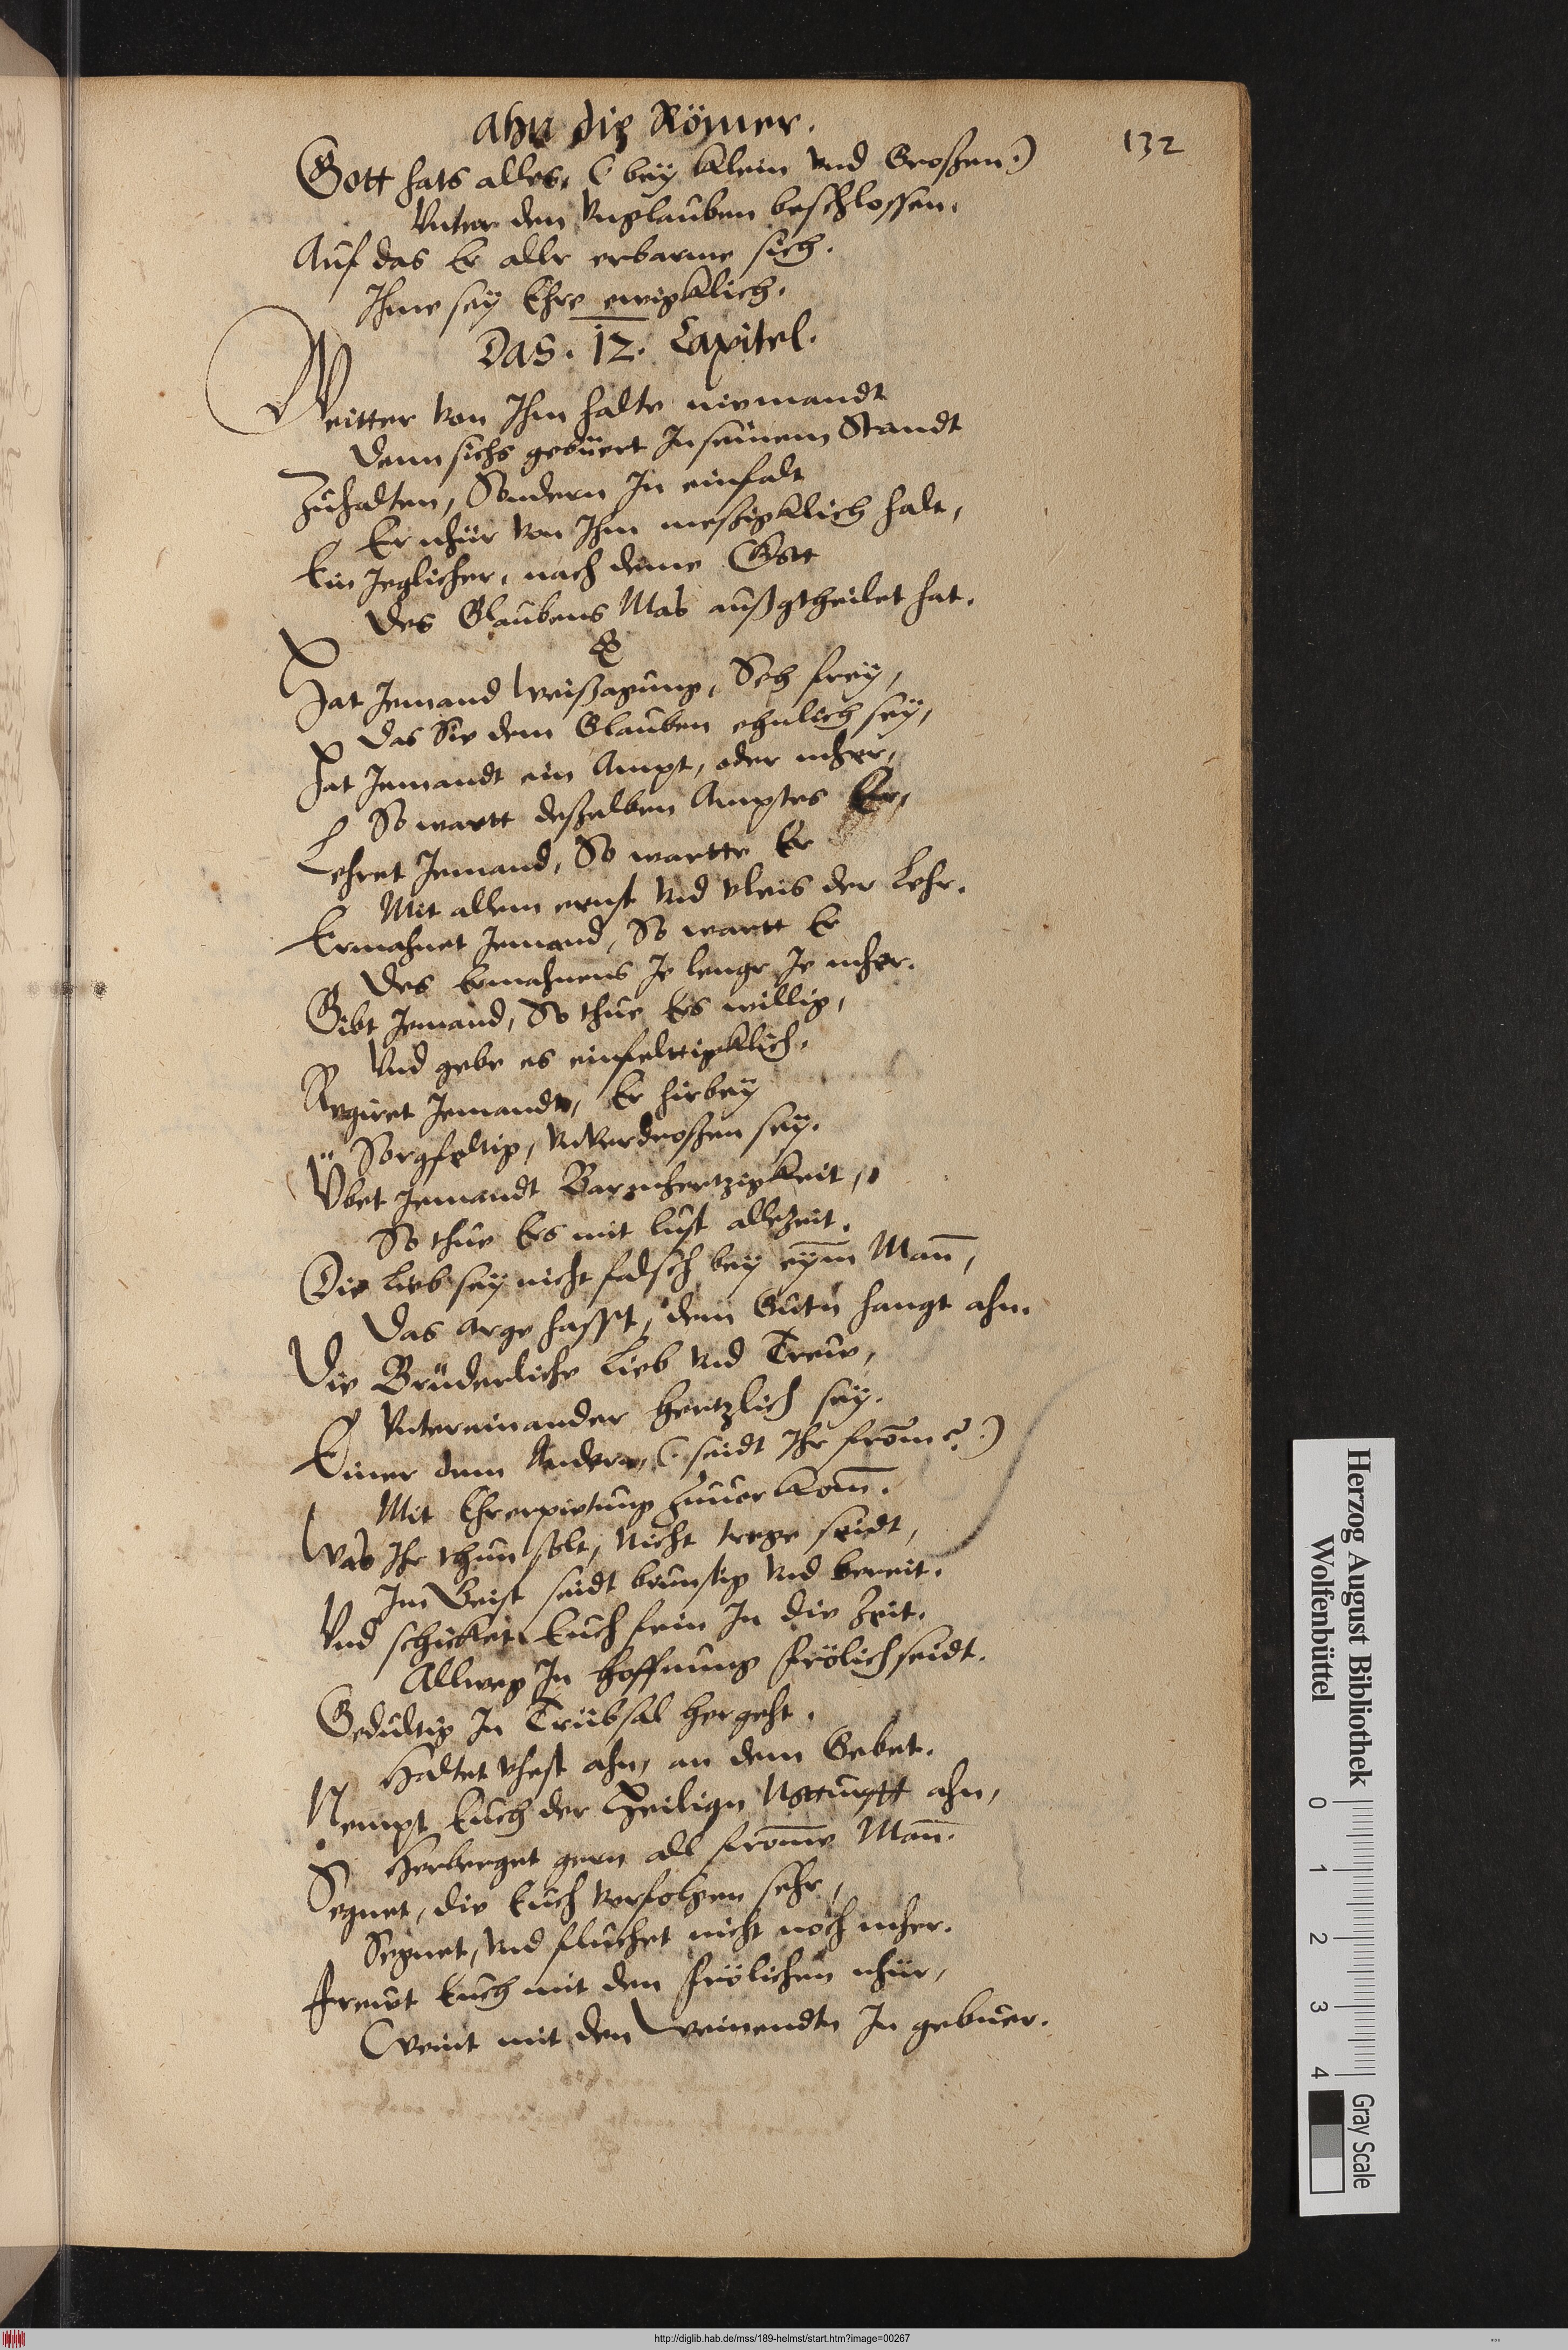 ahn die Römer.
132
Gott hats alles, (bey klein vnd Großen.)
Vnter den vnglauben beschlossen.
Auf das Er alle erbarme sich.
Ihme sey Ehre ewigklich.
Das. 12. Capitel.
Weitter von Ihm halte niemandt
Denn sichs gebüert In seinem Standt
Zuhalten, Sondern In einfalt
Er nhür von Ihm meßigklich halt,
Ein Jeglicher, nach deme Gott
Des Glaubens Mas außgtheilet hat.
Hat Jemand Weißagung, Seh frey,
Das Sie dem Glauben ehnlich sey,
Hat Jemandt ein Ampt, oder mher,
So wartt deßelben Amptes Er,
Lehret Jemand, So wartte Er
Mit allem ernst vnd vleis der Lehr.
Ermahnet Jemand, So wartt Er
Des Ermahnens Je lengr Je mher.
Gibt Jemand, So thue Ers willig,
Vnd gebe es einfelttigklich.
Regiret Jemandt, Er hirbey
Sorgfeltig, vnverdroßen sey.
Vbet Jemandt Barmhertzigkeit,
So thue Ers mit lust allzeit.
Die Lieb sey nicht falsch bey eym Man̄,
Das arge hasst, dem Gutn hangt ahn.
Die Brüderliche Lieb vnd Trew,
Vntereinander hertzlich sey.
Einer dem Andern, (seidt Ihr from̄e.)
Mit Ehrerpietung zuuor kom̄.
Was Ihr thun solt, Nicht trege seidt,
Im Geist seidt brunstig vnd bereit.
Vnd schicket Euch fein In die Zeit.
Allweg In hoffnung frölich seidt.
Gedultig In Trübsal hergeht.
Haltet vhest ahn, an dem Gebet.
Nempt Euch der Heilign Notturft ahn,
Herberget gern all from̄e Man̄.
Segnet, die Euch verfolgen sehr,
Segnet, vnd fluchet nicht noch mher.
Frewt Euch mit den frölichen nhür,
Weint mit den Weinendtn In gebuer.
Herzog August Bibliothek
Wolfenbüttel
0 1 2 3 4
Gray Scale
http://diglib.hab.de/mss/189-helmst/start.htm?image=00267